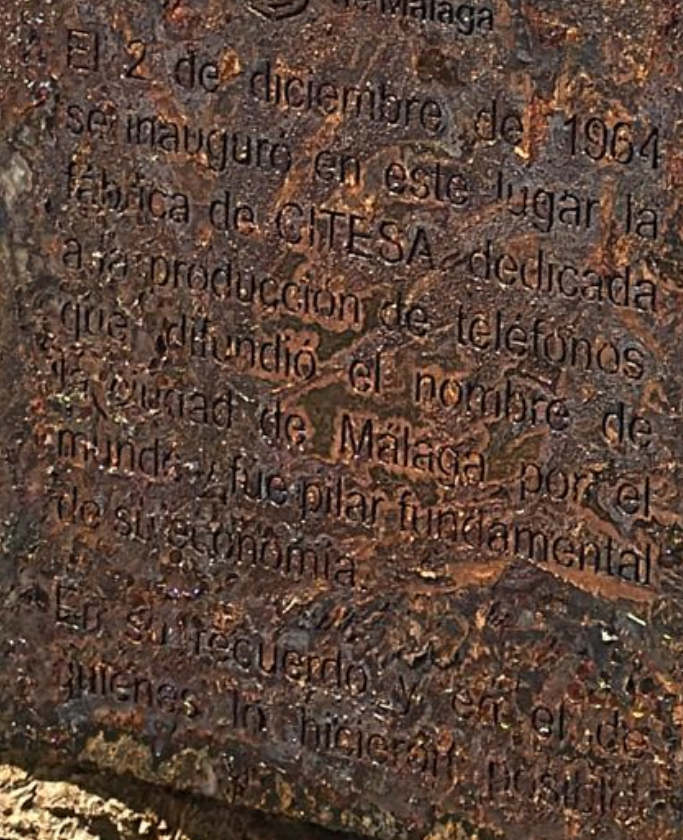 de Málaga
El 2 de diciembre de 1964
se inauguró en este lugar la
fábrica de CITESA dedicada
a la producción de teléfonos
que difundió el nombre de
la ciudad de Málaga por el
mundo y fue pilar fundamental
de su economía.
En su recuerdo y en el de
quienes lo hicieron posible